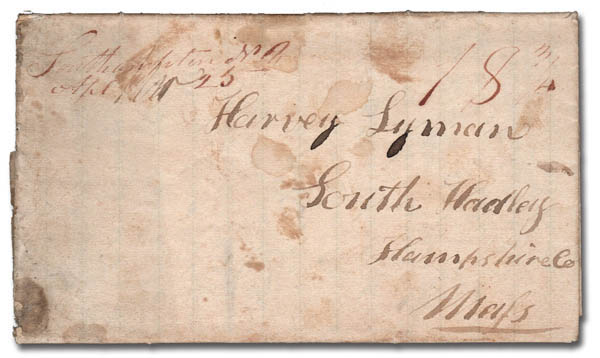 Southampton
18 3/4
Harvey Lyman
South Hadley
Hampshire Co
Mass